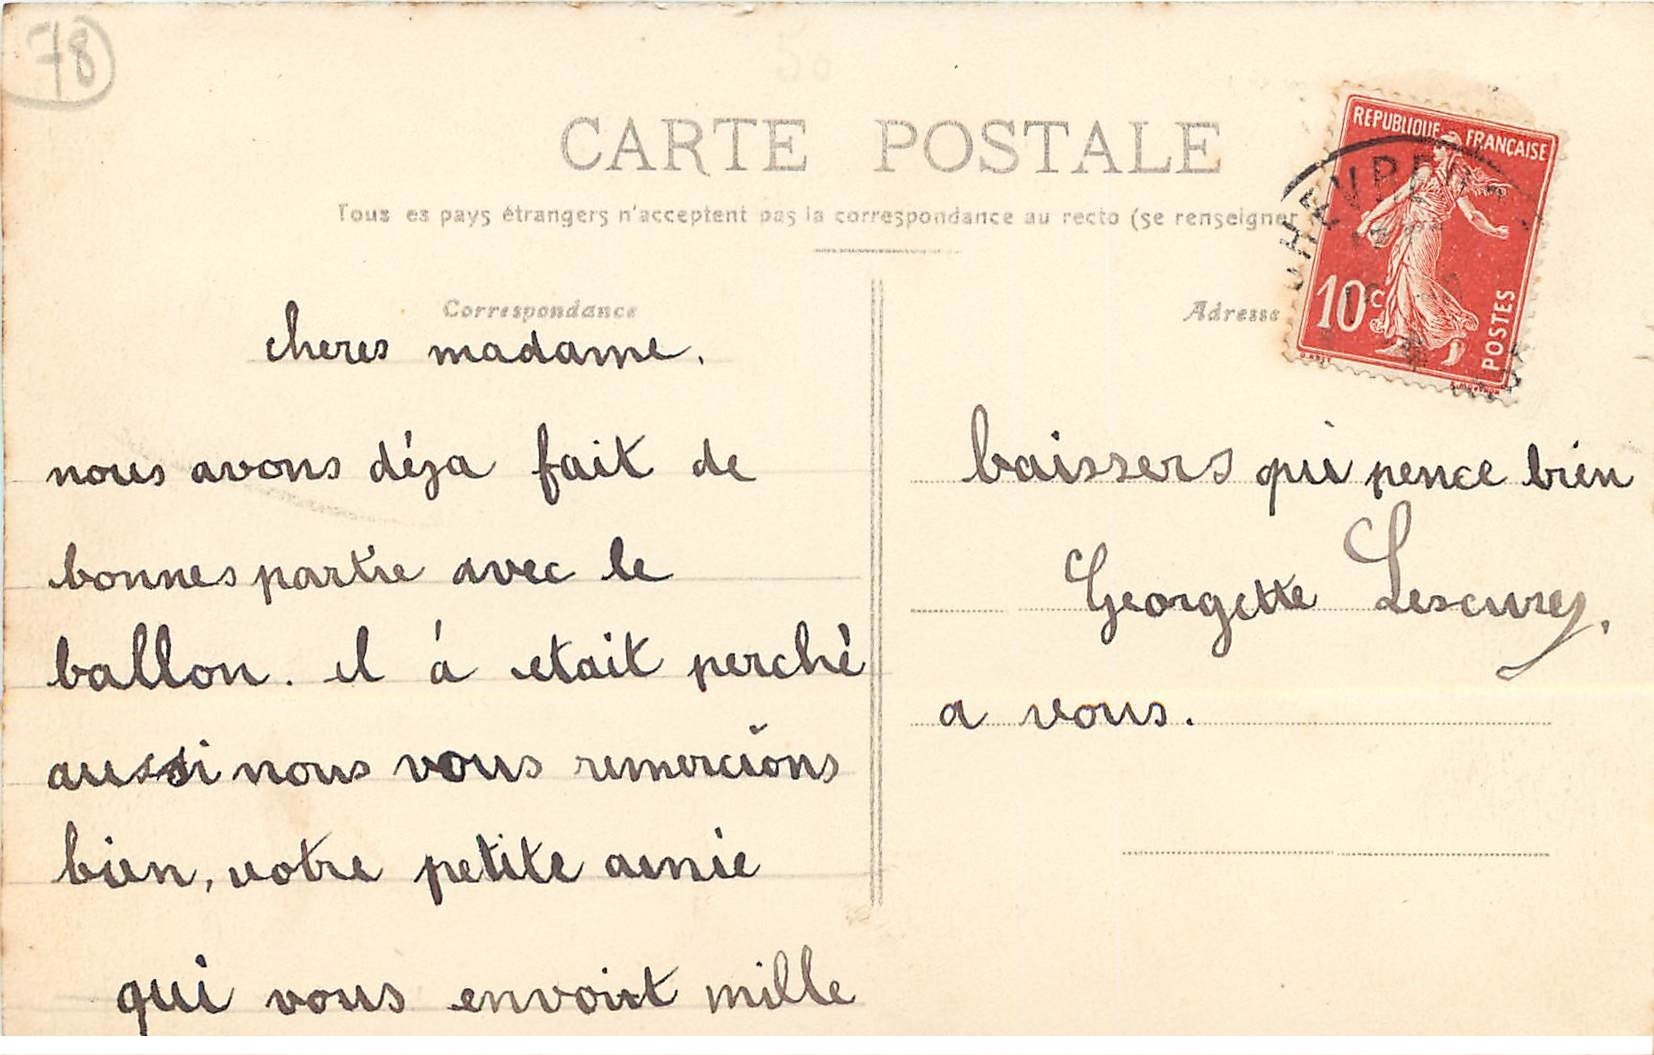 78
CARTE POSTALE
Tous es pays étrangers n'acceptent pas la correspondance au recto (se renseigner
REPUBLIQUE FRANÇAISE
10c
POSTES
Correspondance
Adresse
cheres madame.
nous avons déja fait de
bonnes partie avec le
ballon. il á etait perché
aussi nous vous remercions
bien, votre petite amie
qui vous envoit mille
baissers qui pence bien
Georgette Lescurey.
a vous.